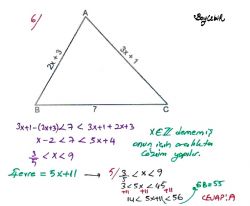 6/
A
2x+3
3x+1
B
7
C
3x+1-(2x+3)<7 < 3x+1+2x+3
x-2 < 7 < 5x+4
3/5 < x < 9
x∈Z dememiş
onun için aralıkta
çözüm yapılır.
Çevre = 5x+11
5/ 3/5 < x < 9
3 < 5x < 45
+11 +11 +11
14 < 5x+11 < 56
EB=55
CEVAP: A